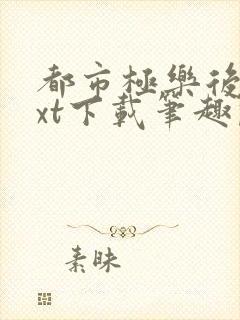 都市極樂後
xt下載筆趣
素昧